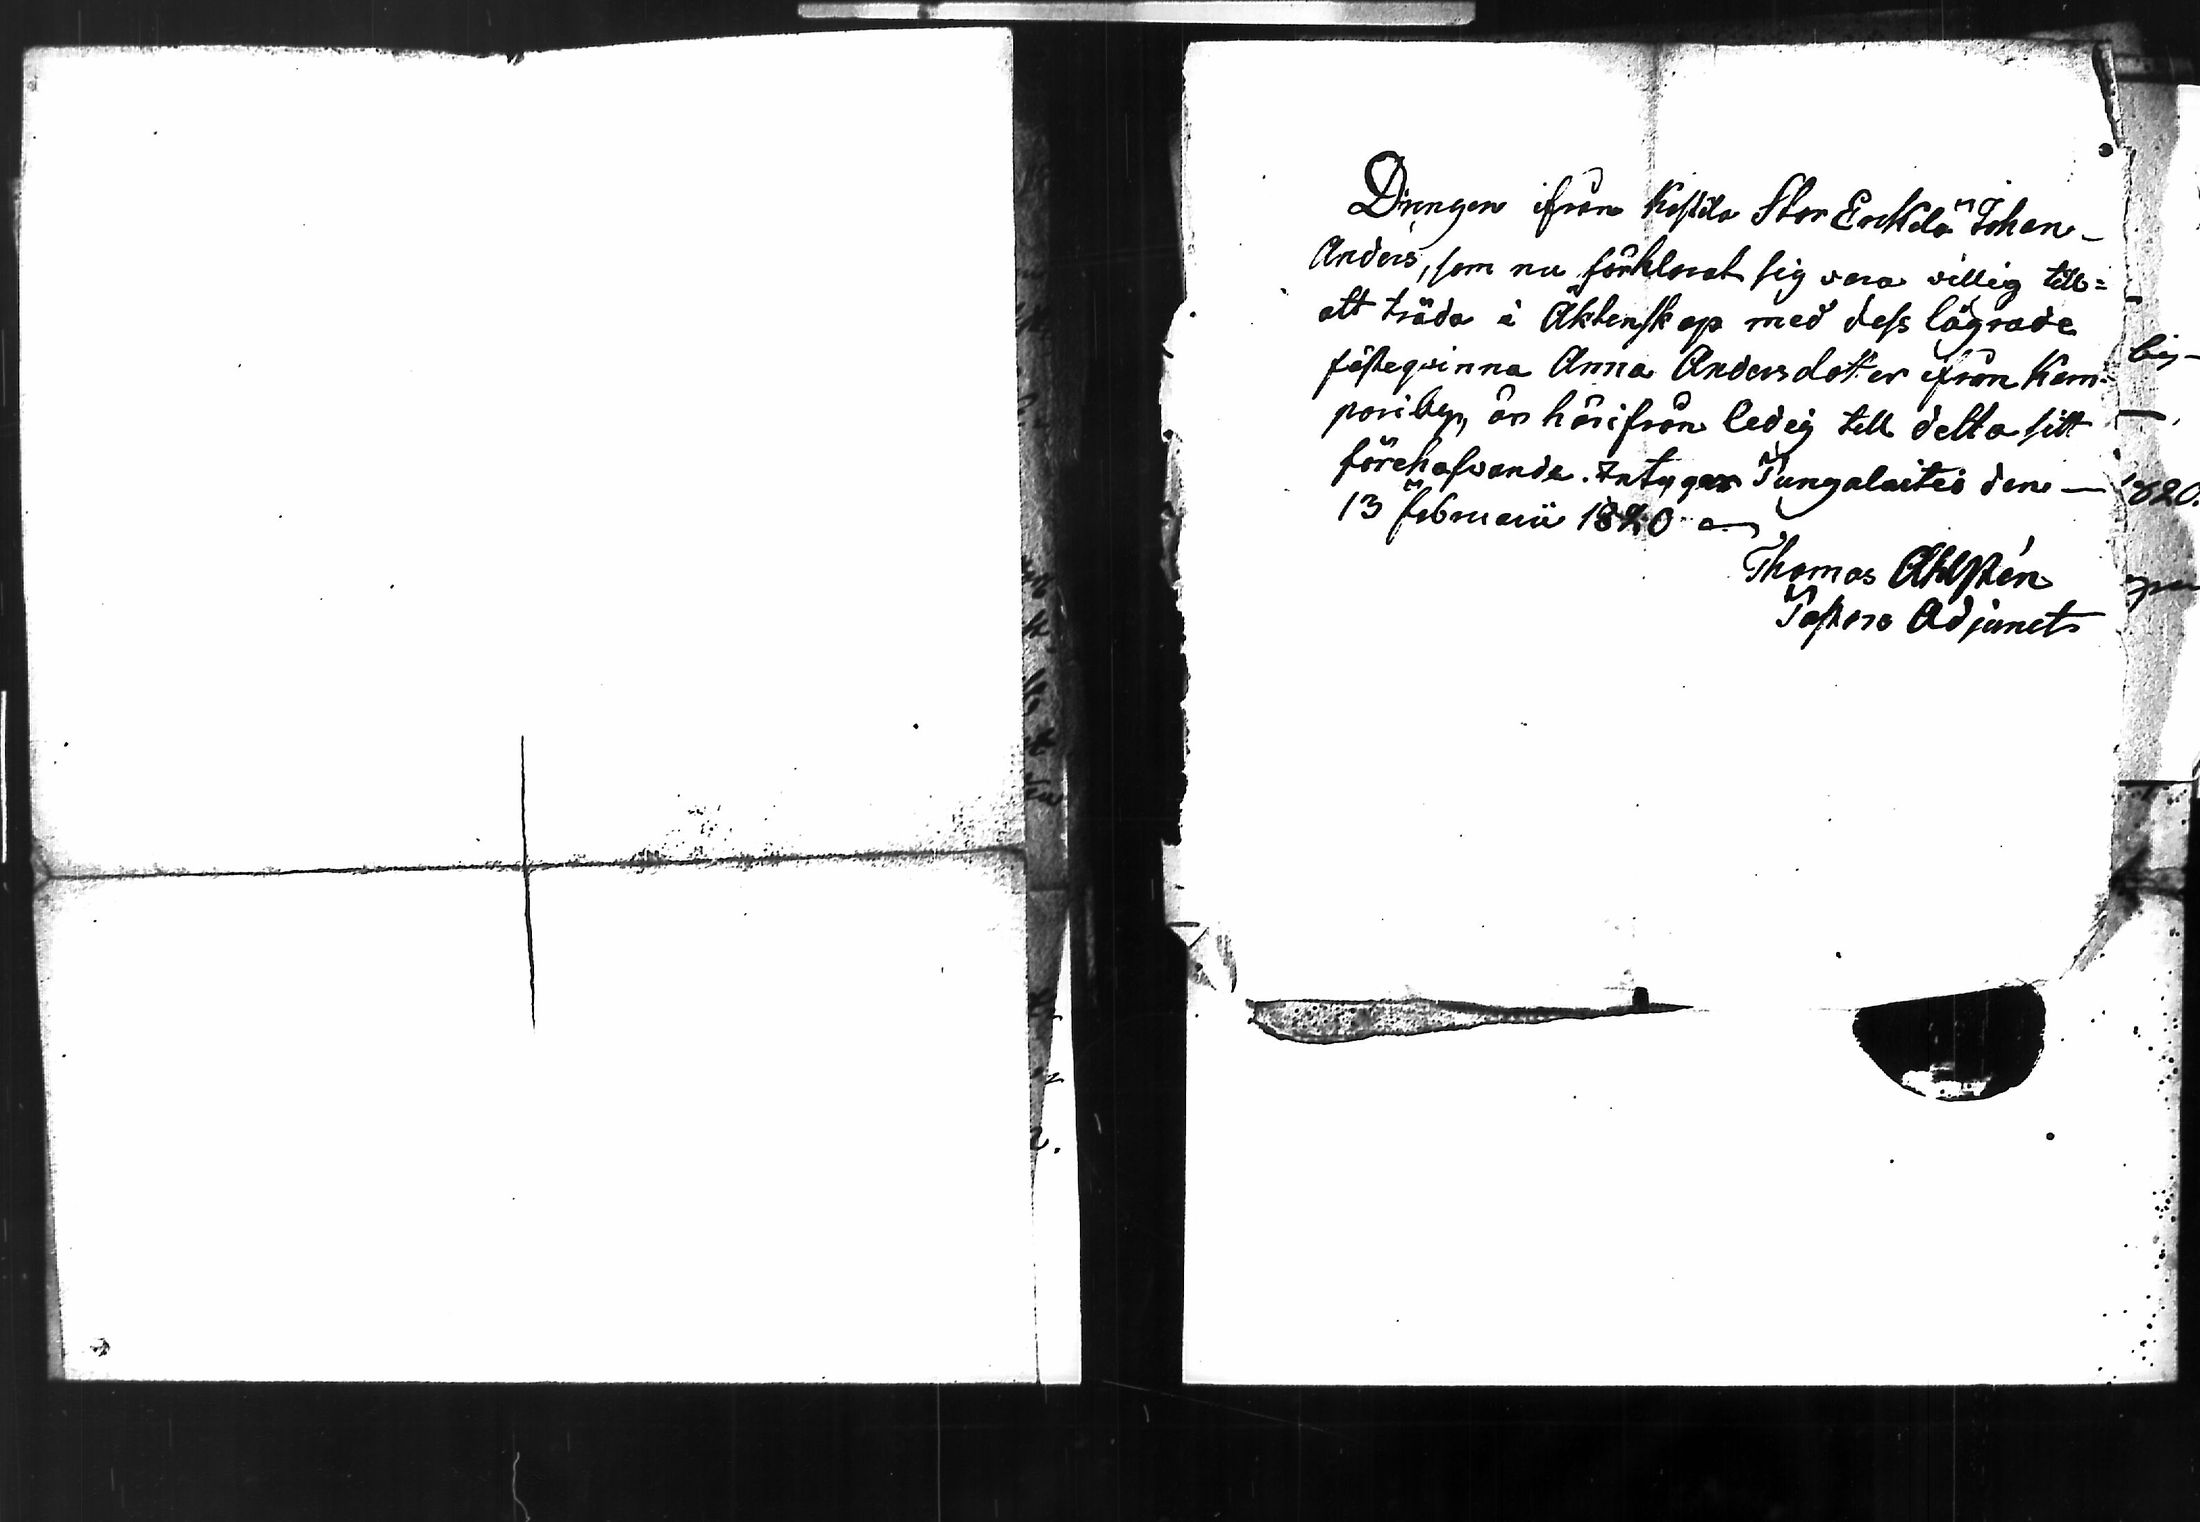 Drengen ifrån Kestila Stor Erkkilä Johan
Anders, som nu förklarat sig vara villig till=
att träda i Äktenskap med dess lägrade
fästeqvinna Anna Andersdotter ifrån Kem-
pari by, är härifrån ledig till detta sitt
förehafvande. Intygar Pungalaitio den —
13 Februarii 1820
Thomas Ahlstén
Pastors Adjunct
820.